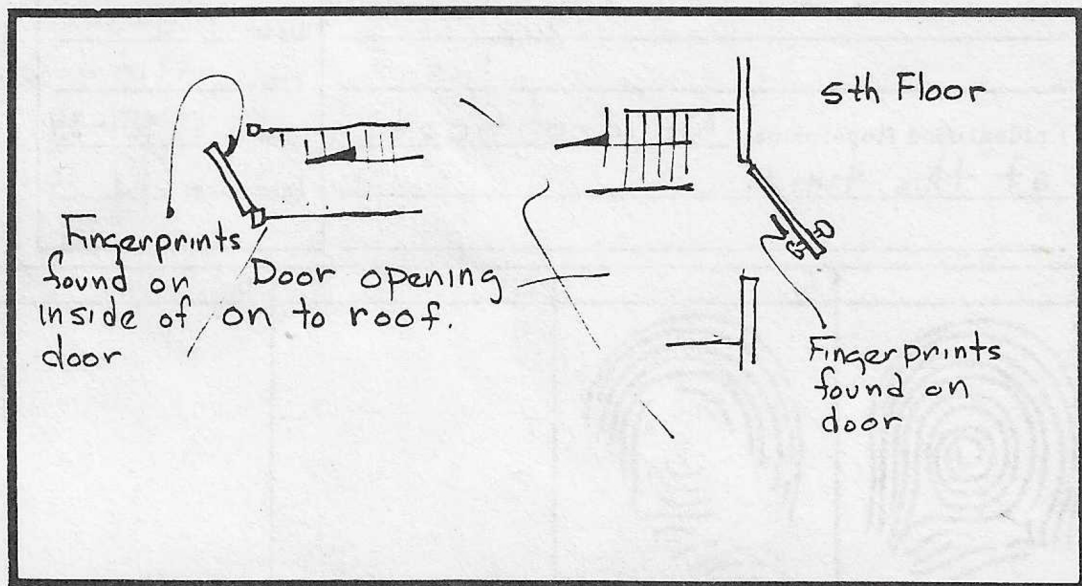 5th Floor
Fingerprints
found on
inside of
door
Door opening
on to roof.
Fingerprints
found on
door
at this time